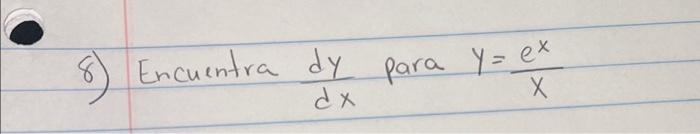 8) Encuentra dy/dx para y = e^x/x